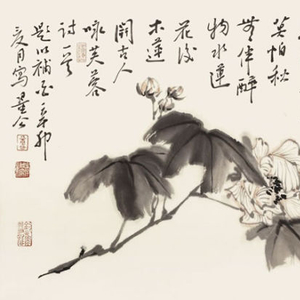 莫怕秋
無伴醉
物水蓮
花後
木蓮
開古人
詠芙蓉
詩一首
題以補白辛卯
夏月寫